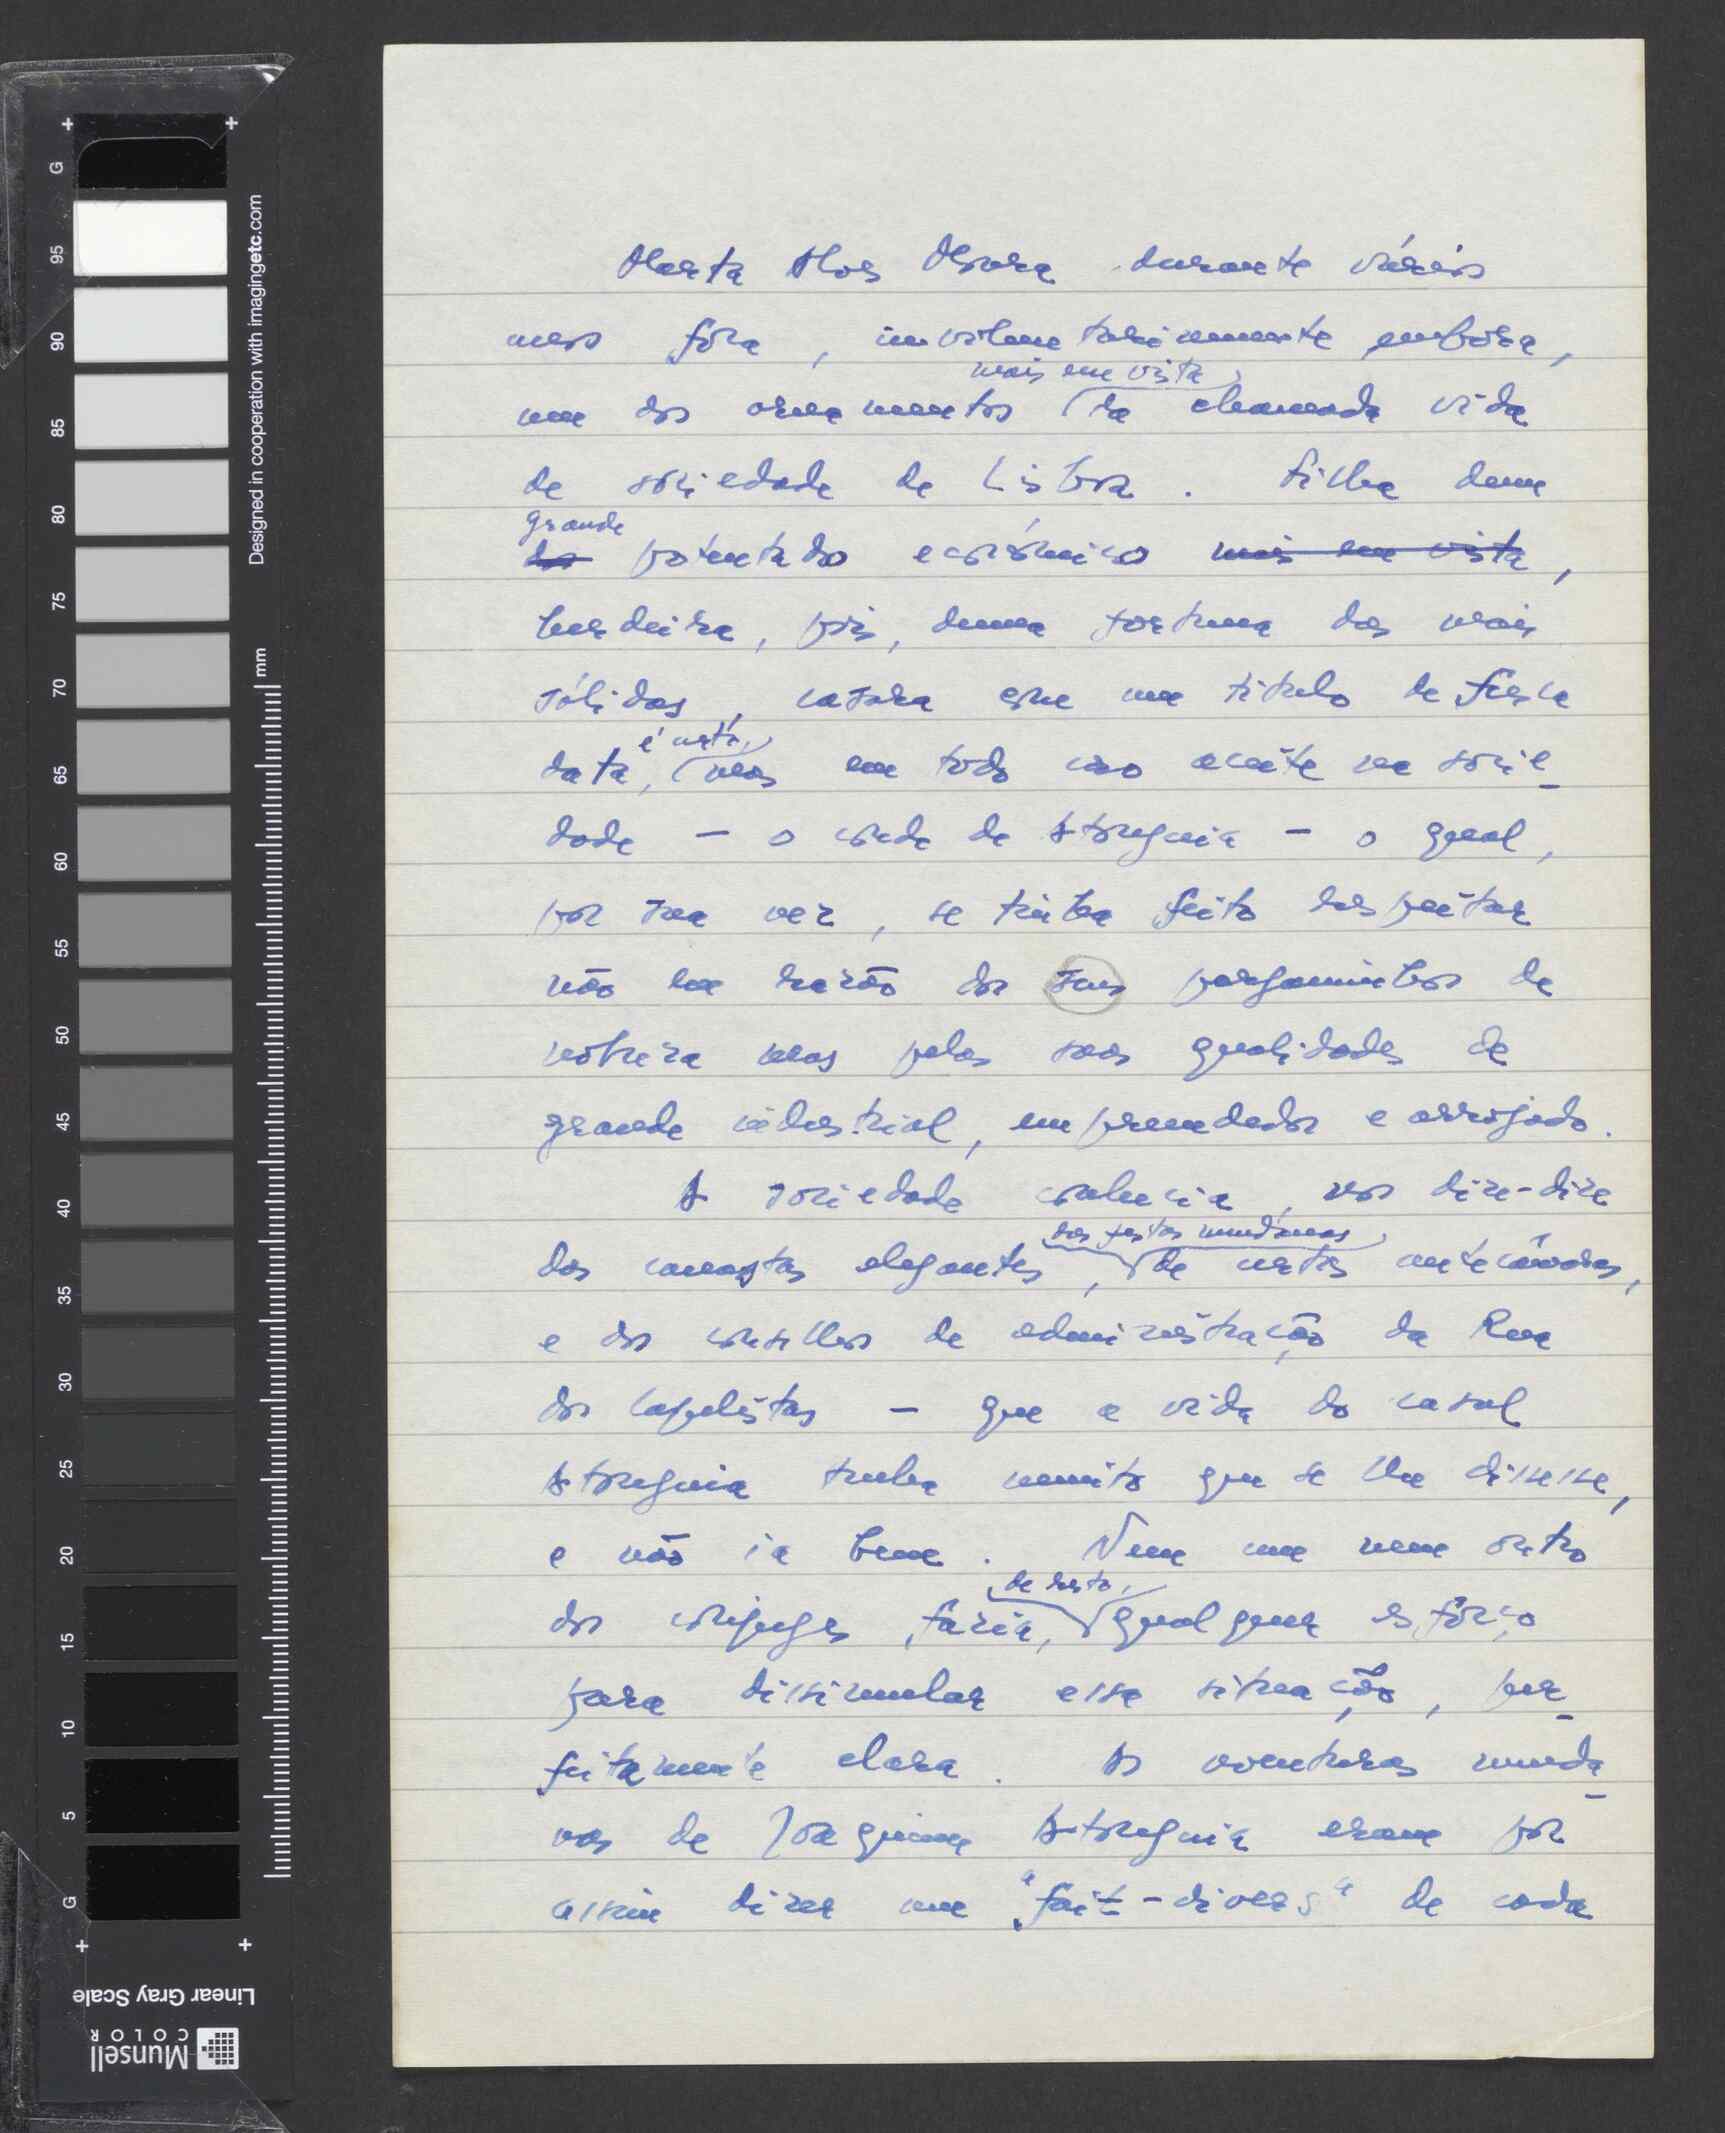 Marta Mora durante vários
anos fôra, involuntariamente embora,
mais em vista
um dos ornamentos da chamada vida
de sociedade de Lisboa. Filha dum
grande
dos potentado económico mais em vista,
herdeira, pois, duma fortuna das mais
sólidas, casara com um título de fresca
é certo,
data, mas em todo caso aceite na socie-
dade - o conde de Atouguia - o qual,
por sua vez, se tinha feito respeitar
não em razão dos seus pergaminhos de
nobreza mas pelas suas qualidades de
grande industrial, empreendedor e arrojado.
A sociedade conhecia, nos dize-dize
das festas mundanas
das canastas elegantes, de certas antecâmaras,
e dos conselhos de administração da Rua
dos Capelistas - que a vida do casal
Atouguia tinha muito que se lhe dissesse,
e não ia bem. Nem um nem outro
de resto,
dos cônjuges fazia, qualquer esfôrço
para dissimular essa situação, per-
feitamente clara. As aventuras munda-
nas de Joaquim Atouguia eram por
assim dizer um "fait-divers" de cada
G
95
90
85
80
75
70
65
60
55
50
45
40
35
30
25
20
15
10
5
G
Designed in cooperation with imagingetc.com
mm
Linear Gray Scale
Munsell
COLOR